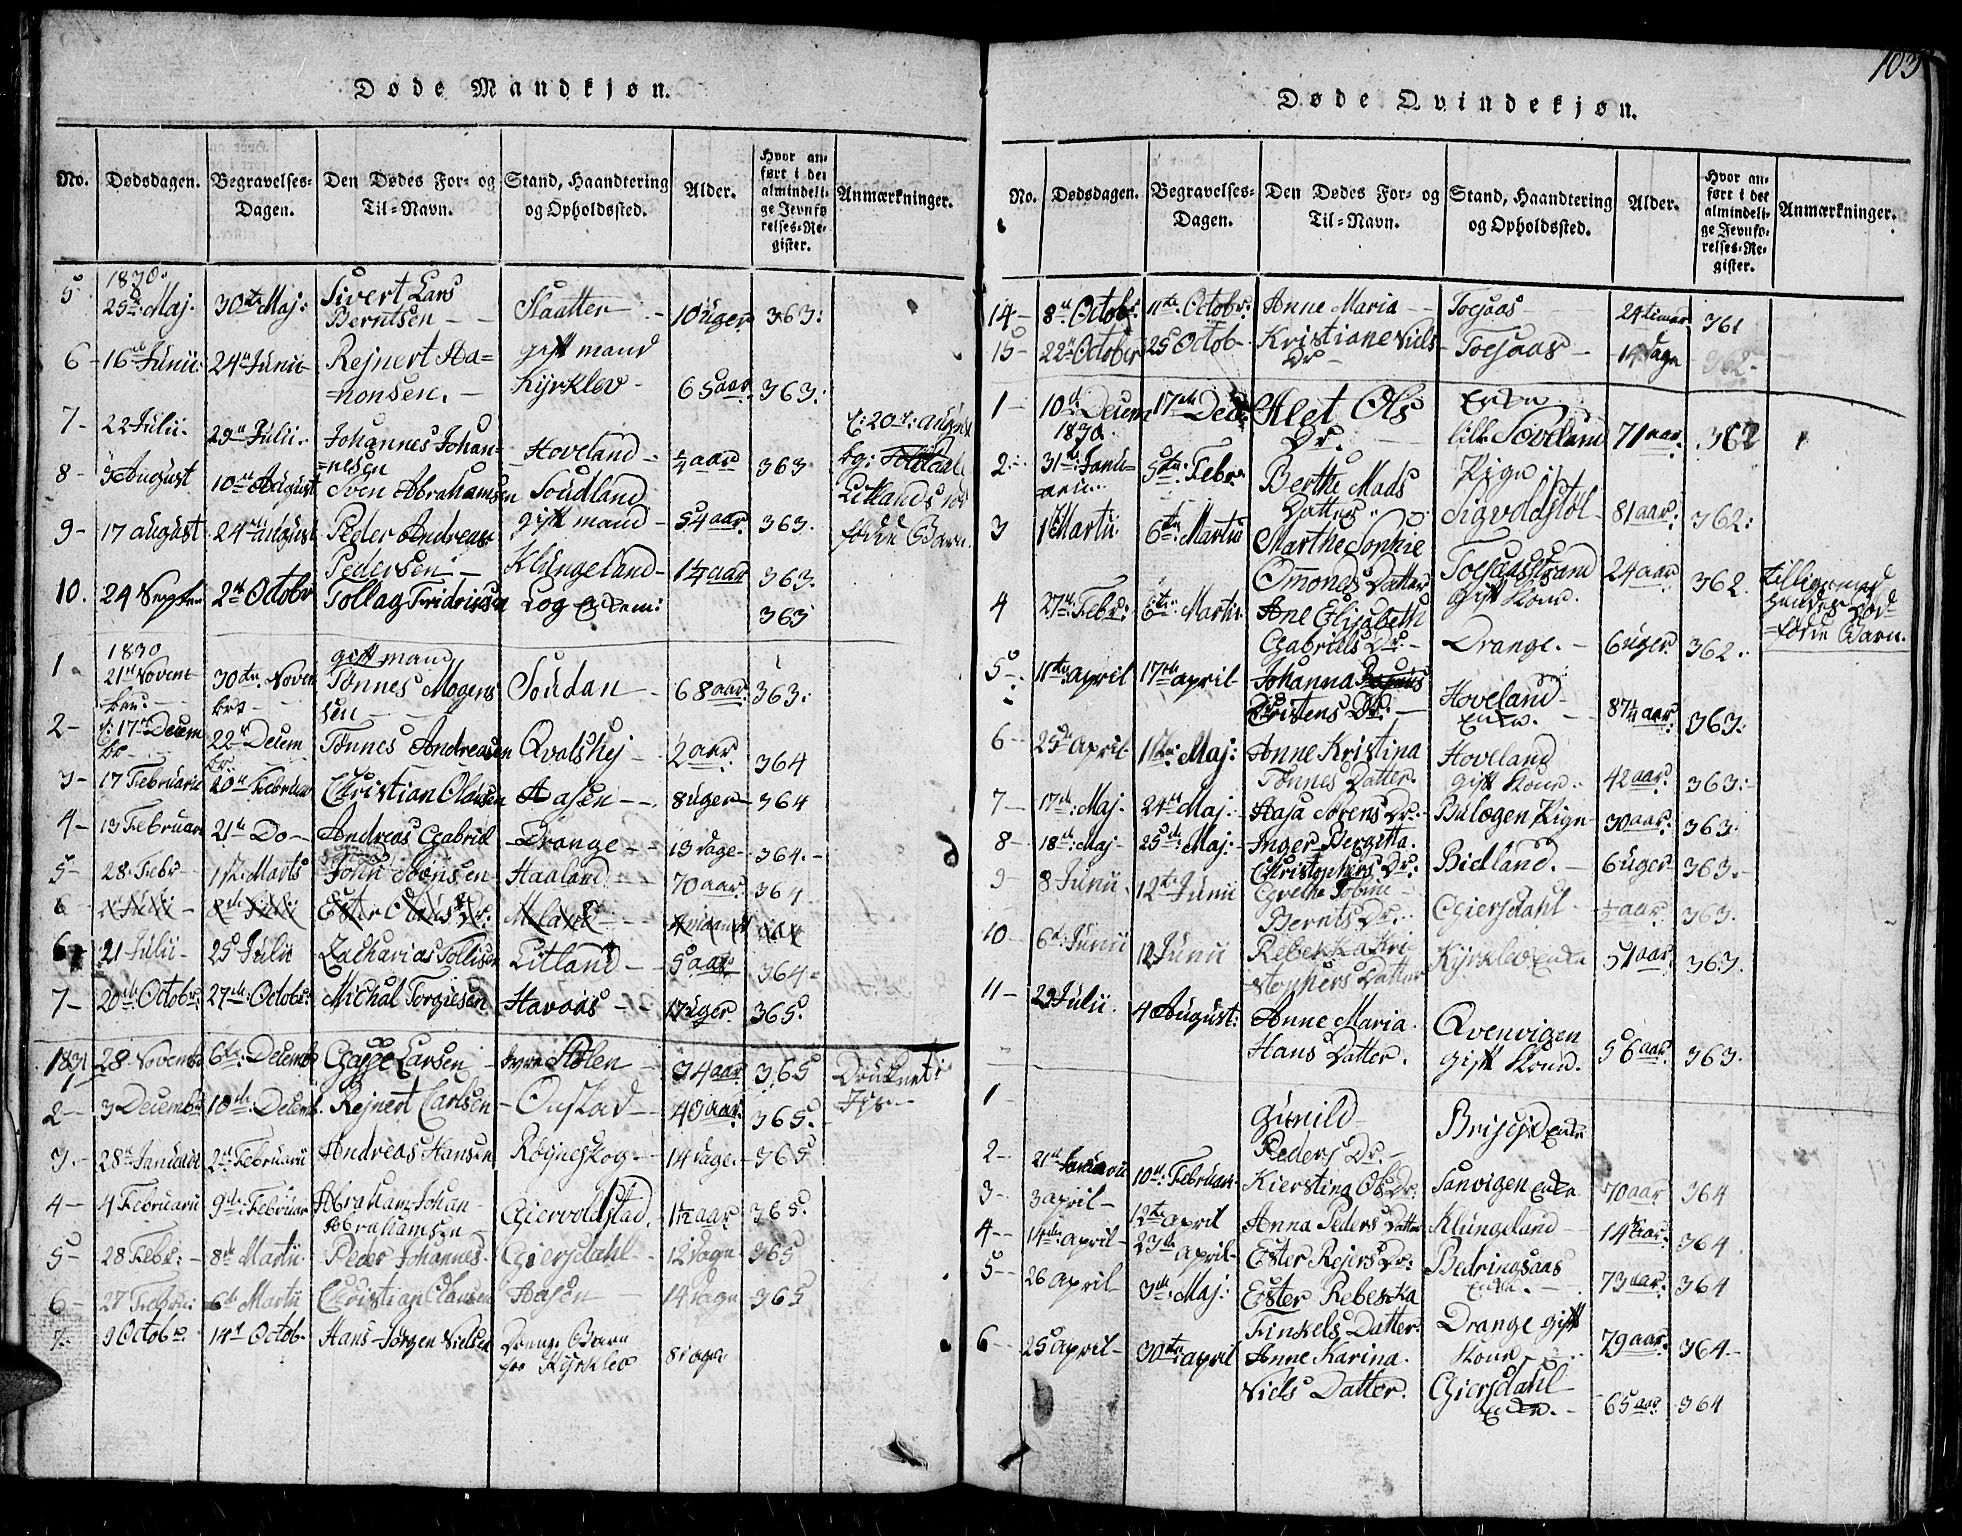 103
Døde Mandkjøn.
No. Dødsdagen. Begravelses-Dagen. Den Dødes For- og Til-Navn. Stand, Haandtering og Opholdssted. Alder. Hvor anført i det almindelige Jevnførelses-Register. Anmærkninger.
1830
5 25de Maj. 30te Maj: Sivert Lars Berntsen Slaatter 10 uger 363:
6 - 16de Junii: 24de Junii Rejnert Aanonsen. gift mand Kyrklev - 65 aar. 363:
7 - 22 Julii. 29de Julii. Johannes Johannesen Hoveland ¼ aar 363
8 - 3 August 10de August Sven Abrahamsen Soudland gift mand 54 aar. 363.
9 - 17 august 24de august Peder Andreas Pedersen Klungeland 1¼ aar 363.
10. 24 Septbr 2de Octobr Tollag Fridrichsen Log 363
1830
1 21de November 30te November Tønnes Mogensen gift mand Soudan 68 aar: 363.
2 - 17de Decembr 22de Decembr Tønnes Andreasen Qvalshej 2 aar. 364
3 - 17 Februarii 20de Februar Christian Olausen Aasen - 8 uger 364
4 - 13 Februarii 21de Do - Andreas Gabriel Drange - 13 dage 364.
5 - 28 Febr 1te Marts John Jonsen Haaland 70 aar. 364
6 Julii 8de Julii Ester Olaus Dr.
6 21 Julii - 25 Julii Zacharias Tollisen Litland 5 aar 364
7 - 20de Octobr. 27de Octobr: Michal Torgiesen Havaas - 17 uger 365.
1831
1 28 Novembr 6te Decembr Larsen Stolen 34 aar 365
2 - 3 Decembr 10de Decembr. Rejnert Carlsen Onstad 40 aar. 365.
3. - 28de Januarii 2de Februarii Andreas Hansen Røyneskog - 14 dage. 365
4 - 4 Februarii 9de Februar Abraham Johan Abrahamsen Giervoldstad. 1½ aar 365.
5 - 28 Febr: 8de Martii Peder Johannes Giersdahl 12 dage 365
6 - 27 Febru: 6te Martii Christian Olausen Aasen 14 dage 365
7 - 9 Octobr. 14de Octob. Hans Jørgen Nielsen Drenge Barn fra Kyrklev 8 dage
Døde Qvindekjøn.
No. Dødsdagen. Begravelses-Dagen. Den Dødes For- og Til-Navn. Stand, Haandtering og Opholdssted. Alder. Hvor anført i det almindelige Jevnførelses-Register. Anmærkninger.
14 - 8de Octobr. 11te Octobr. Anne Maria Toesaas 24 timer 361
15 - 22de October 25 Octob - Kristiane Niels Dr - Toesaas - 14 dage 362.
1 - 10de Decem 17de Dec: Alet Ols Dr. lille Soveland 71 aar. 362
1830
2. 31te Januarii 5te Febr Berthe Mads Datter Pige Sigvoldstøl 81 aar: 362:
3 1te Martii 6te Martii Marthe Sophie Omonds Datter Toesaasstrand gift Kone. 24 aar 362
4 27de Febr: 6te Martii Ane Elisabeth Gabriels Dr. - Drange. - 6 uger. 362.
5 - 11te april 17de april Johanna Cristens Dr: Hoveland Enke. 87¼ aar. 363.
6 - 25de April 1te Maj: Anne Kristina Tønnes Datter. Hoveland gift Kone. 42 aar. 363.
7 - 17de Maj - 24de Maj: Aasa Sørens Dr. Buløgen Pige 30 aar: 363.
8 - 18de Maj - 25de Maj: Inger Bergitta Christophers Dr: Bidland. - 6 uger 363.
9 - 8 Junii. 12te Junii Grethe Tobine Bernts Dr. Giersdahl - ½ aar. 363.
10 - 6te Junii 12 Junii Rebekka Kristophers Datter Kyrklev Enke 51 aar. 363.
11 - 29 Julii. 4 August: Anne Maria Hans Datter. Qvenvigen gift Kone. 56 aar. 363.
1 Gunild Peders Dr - Briseid Enke
2 - 21de Januarii 10de Februar Kiersting Ols Dr. Sanvigen Enke 70 aar 364
3 - 3 april - 12te april Anna Peders Datter Klungeland 364
4 - 14de april - 23de april - Ester Rejers Dr: Bedringsaas Enke. - 73 aar. 364
5 - 26 april 3de Maj: Ester Rebekka Finkels Datter. Drange gift Kone 79 aar. 364
6 - 25 april - 30te april Anne Karina Niels Datter. Giersdahl Enke. - 65 aar. 364